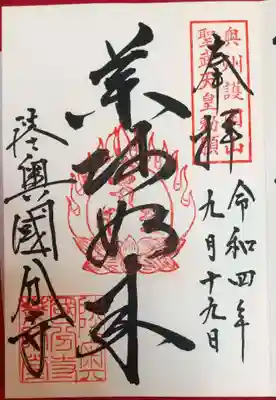 奥州護国山
聖武天皇勅願
奉拝
令和四年
九月十九日
薬師如来
陸奥國分寺